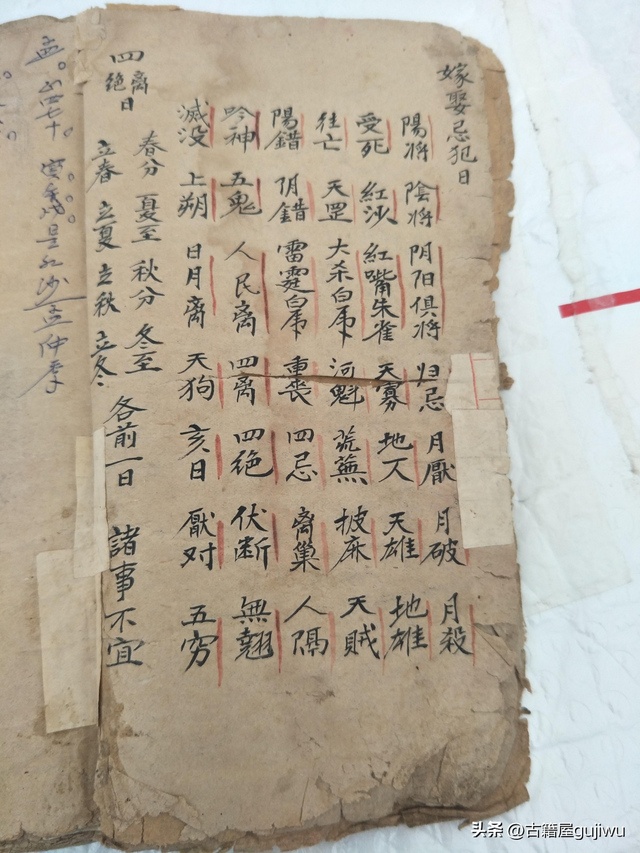 嫁娶忌犯日
陽將 陰將 阴阳俱將 归忌 月厭 月破 月殺
受死 紅沙 紅嘴朱雀 天寡 地 天雄 地雄
往亡 天罡 大杀白虎 河魁 荒蕪 披麻 天賊
陽錯 阴錯 雷霆白虎 重喪 四忌 离巢 人隔
吟神 五鬼 人民离 四离 四绝 伏断 無翹
滅没 上朔 日月离 天狗 亥日 厭对 五穷
四离绝日
春分 夏至 秋分 冬至
立春 立夏 立秋 立冬
各前一日 諸事不宜
孟。四七十。
是红沙孟仲季
头条 @古籍屋gujiwu